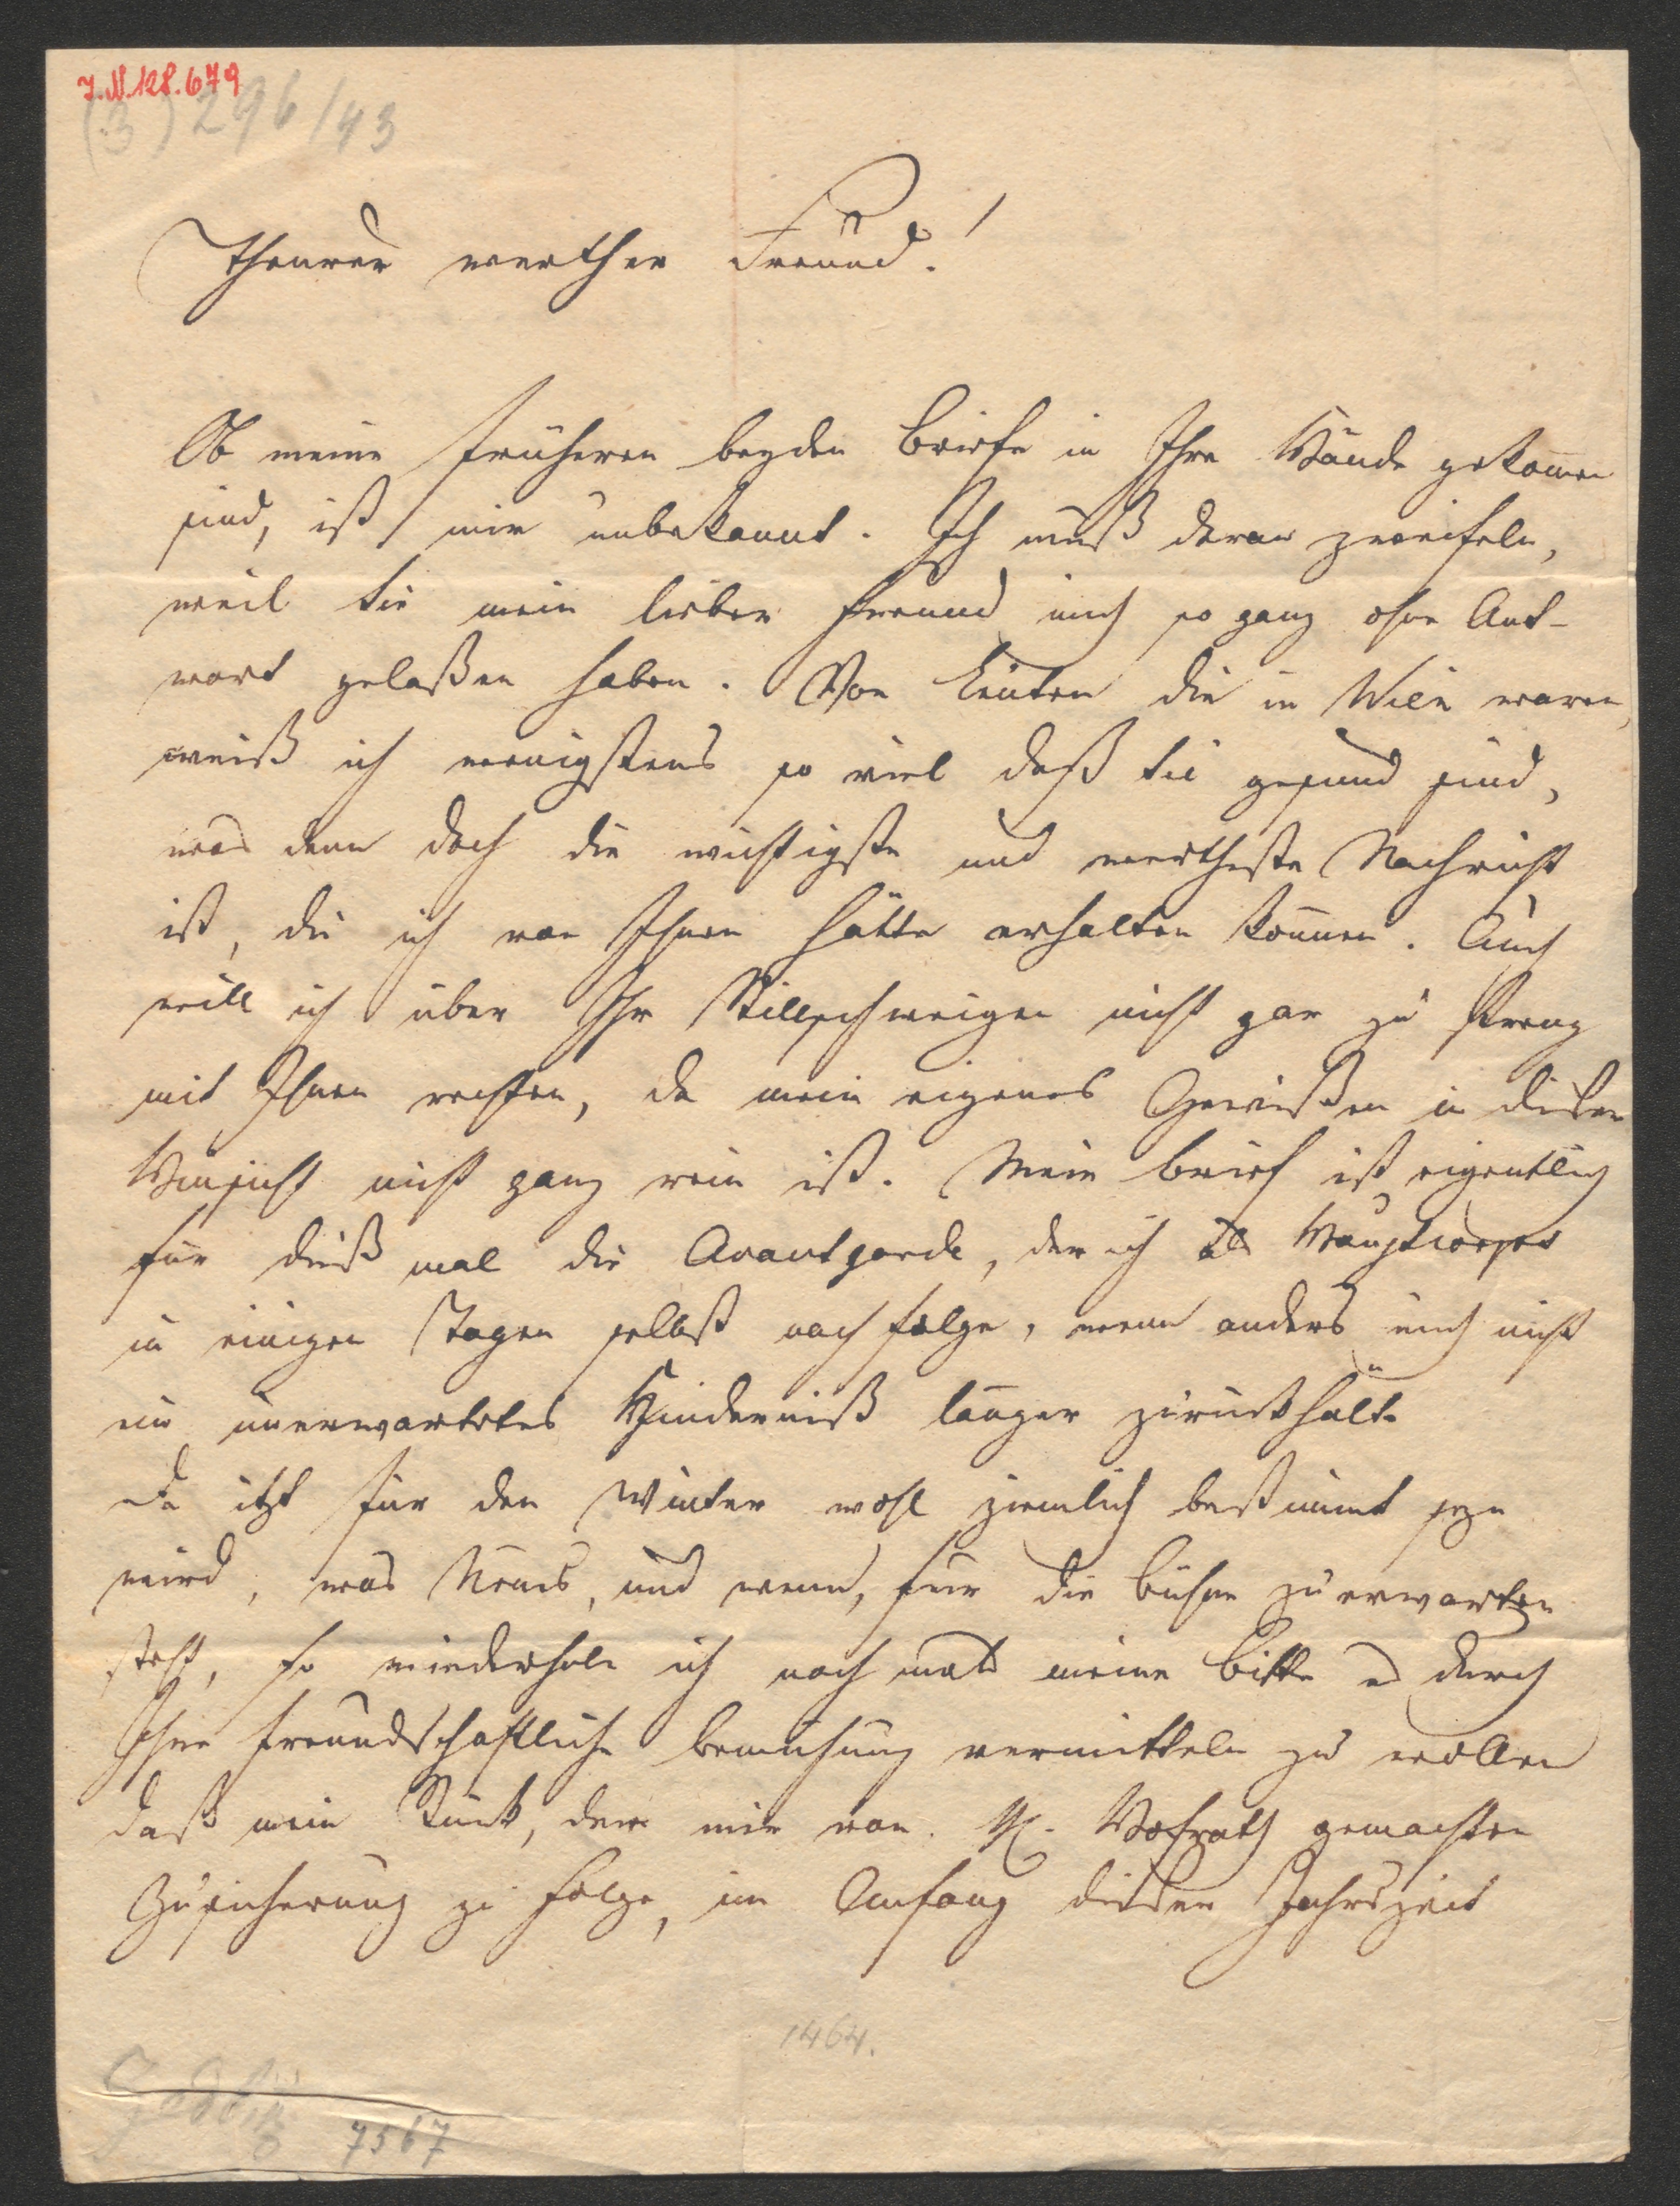 I.N.128.679
(3) 296/43
Theurer werther Freund!
Ob meine früheren beyden Briefe in Ihre Hände gekom̄en
sind, ist mir unbekannt. Ich muß daran zweifeln,
weil Sie mein lieber Freund mich so ganz ohne Ant-
wort gelaßen haben. Von Leuten die in Wien waren,
weiß ich wenigstens so viel daß Sie gesund sind,
was denn doch die wichtigste und wertheste Nachricht
ist, die ich von Ihnen hätte erhalten können. Auch
will ich über Ihr Stillschweigen nicht gar zu streng
mit Ihnen rechten, da mein eigenes Gewißen in dieser
Hinsicht nicht ganz rein ist. Mein Brief ist eigentlich
für dieß mal die Avantgarde, der ich als Hauptcorps
in einigen Tagen selbst nachfolge, wenn anders mich nicht
ein unerwartetes Hinderniß länger zurückhält.
Da itzt für den Winter wohl ziemlich bestimmt seyn
wird, was Neues, und wenn, für die Bühne zu erwarten
steht, so wiederhole ich noch mals meine Bitte es durch
Ihre freundschaftliche Bemühung vermitteln zu wollen
daß mein Stück, der mir von H. Hofrath gemachten
Zusicherung zu Folge, im Anfang dieser Jahrszeit
1464.
Zedlitz
7567